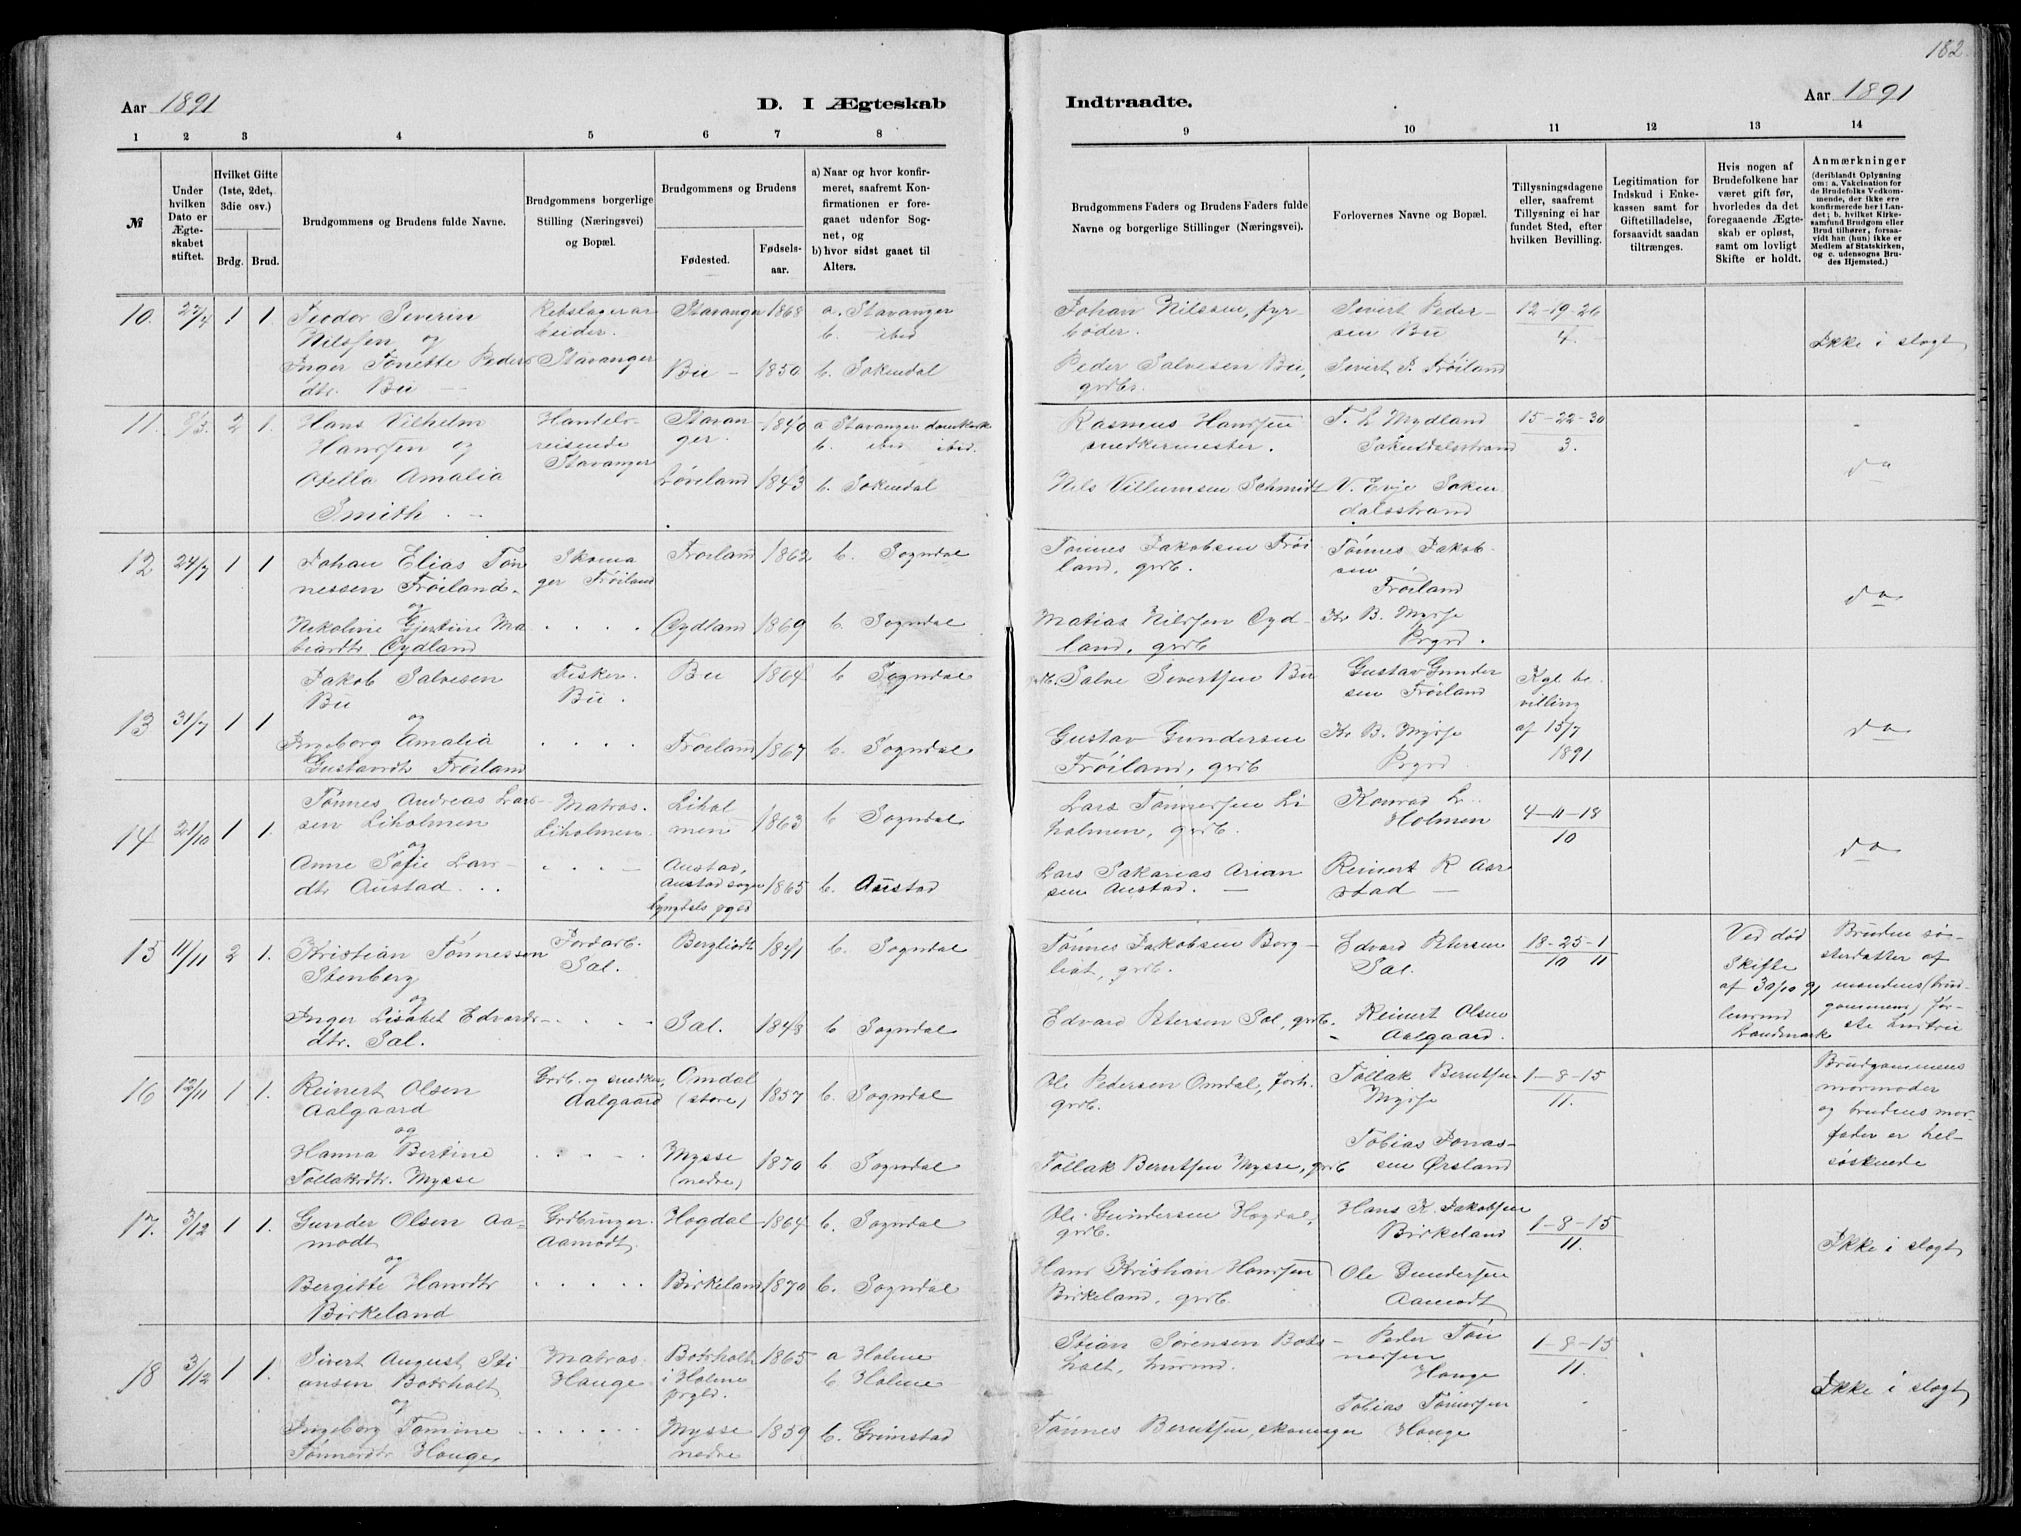 182.
Aar 1891
D. I Ægteskab
Indtraadte.
Aar 1891
1 2 3 4 5 6 7 8 9 10 11 12 13 14
№
Under hvilken Dato er Ægteskabet stiftet.
Hvilket Gifte (1ste, 2det, 3die osv.)
Brdg. Brud.
Brudgommens og Brudens fulde Navne.
Brudgommens borgerlige Stilling (Næringsvei) og Bopæl.
Brudgommens og Brudens
Fødested.
Fødselsaar.
a) Naar og hvor konfirmeret, saafremt Konfirmationen er foregaaet udenfor Sognet, og
b) hvor sidst gaaet til Alters.
Brudgommens Faders og Brudens Faders fulde Navne og borgerlige Stillinger (Næringsvei).
Forlovernes Navne og Bopæl.
Tillysningsdagene eller, saafremt Tillysning ei har fundet Sted, efter hvilken Bevilling.
Legitimation for Indskud i Enkekassen samt for Giftetilladelse, forsaavidt saadan tiltrænges.
Hvis nogen af Brudefolkene har været gift før, hvorledes da det foregaaende Ægteskab er opløst, samt om lovligt Skifte er holdt.
Anmærkninger
(deriblandt Oplysning om: a. Vakcination for de Brudefolks Vedkommende, der ikke ere konfirmerede her i Landet; b. hvilket Kirkesamfund Brudgom eller Brud tilhører, forsaavidt han (hun) ikke er Medlem af Statskirken, og c. udensogns Brudes Hjemsted.)
10. 1 1.
Teodor Severin
Nilssen og
Inger Tonette Peders
dtr. Bu —
Rebslagerar
beider.
Stavanger
Stavanger 1868 a. Stavanger
b. ibid
Bu — 1850 b. Sokendal
Johan Nilssen, fyr
bøder.
Peder Salvesen Bu,
grdbr.
Sivert Peder-
sen Bu
Sivert P. Frøiland
12-19-26
4.
Ikke i slegt
11. 2 1.
Hans Vilhelm
Hanssen og
Otella Amalia
Smith. —
Handels-
reisende
Stavanger
Stavan
ger. 1840 a Stavanger
b. ibid ibid.
1843 b. Sokendal
Rasmus Hanssen
snedkermester.
Nils Villumsen Schmidt
Mydland
V. Evje Soken
dalsstrand
15-22-30
3.
do
12 24/7 1 1
Johan Elias Tøn
nessen Frøiland.
og
Nikoline Gjertine Ma
Cydland
Skoma
ger Frøiland
Frøiland 1862 b. Sogndal
Cydland 1869 b. Sogndal
Tønnes Jakobsen Frøi
land, grdb.
Matias Nilssen Cyd-
land, grdb
Tønnes Jakob-
sen
Frøiland
Kr B. Mysse
Prgrd.
do
13 31/7 1 1
Jakob Salvesen
Bu
og
Ingeborg Amalia
Gustavdtr Frøiland
Fisker.
Bu.
Bu 1864 b Sogndal
Frøiland 1867 b. Sogndal
grdb. Salve Sivertsen Bu
Gustav Gundersen
Frøiland, grdb
Gustav Gunder
sen Frøiland
Kr B. Mysse
Prgrd
Kgl be
villing
af 15/7
1891
do
14 21/10 1 1.
Tønnes Andreas Lar-
sen Liholmen
og
Anne Sofie Lars-
dtr Austad. . .
Matros.
Liholmen.
Lihol
men 1863 b Sogndal
Austad,
Austad sogn
Lyngdals pgld 1865 b. Austad
Lars Tønnessen Li
holmen, grdb.
Lars Sakarias Arian
sen Austad. —
Konrad L.
Holmen
Reinert R Aar
stad —
4-11-18
10
do
15 11/11 2 1.
Kristian Tønnessen
Stenberg
og
Inger Lisabet Edvards-
dtr. Sal.
Jordarb.
Sal.
Bergliodt 1841 b. Sogndal
Sal. 1848 b Sogndal
Tønnes Jakobsen Berg-
liot, grdb.
Edvard Petersen Sal, grdb.
Edvard Petersen
Sal.
Reinert Olsen
Aalgaard.
18-25-1
10 11
Ved død
Skifte
af 30/10 91
Lensmd
Landmark
Bruden sø-
sterdatter af
mandens (brud-
gommens) før-
ste hustru
16 12/11 1 1.
Reinert Olsen
Aalgaard
og
Hanna Bertine
Tollaksdtr. Mysse
Grdb. og snedker,
Aalgaard
Omdal
(store) 1857 b. Sogndal
Mysse
(nedre) 1870 b. Sogndal
Ole Pedersen Omdal, forh.
grdb.
Tollak Berntsen Mysse, grdb
Tollak Berntsen
Mysse
Tobias Jonas-
sen Ørsland
1-8-15
11.
Brudgommens
mormoder
og brudens mor-
fader er hel-
søskende
17. 3/12 1 1.
Gunder Olsen Aa-
modt
og
Bergitte Hansdtr
Birkeland
Grdbruger.
Aamodt.
Hogdal 1864 b. Sogndal
Birkeland 1870 b. Sogndal
Ole Gundersen Hogdal,
grdb.
Hans Kristian Hanssen
Birkeland, grdb.
Hans K. Jakobsen
Birkeland
Ole Gundersen
Aamodt
1-8-15
11.
Ikke i slegt
18 3/12 1 1.
Sivert August Sti
ansen Bodsholt
og
Ingeborg Tomine
Tønnesdtr Hauge,
Matros.
Hauge
Bodsholt
i Holme
prgld. 1865 a Holme
b Holme
Mysse
nedre 1859 b. Grimstad
Stian Sørensen Bods-
holt, husmd.
Tønnes Berntsen, skomager
Peder Tøn
nessen
Hauge
Tobias Tønnessen
Hauge
1-8-15
11.
Ikke i slegt